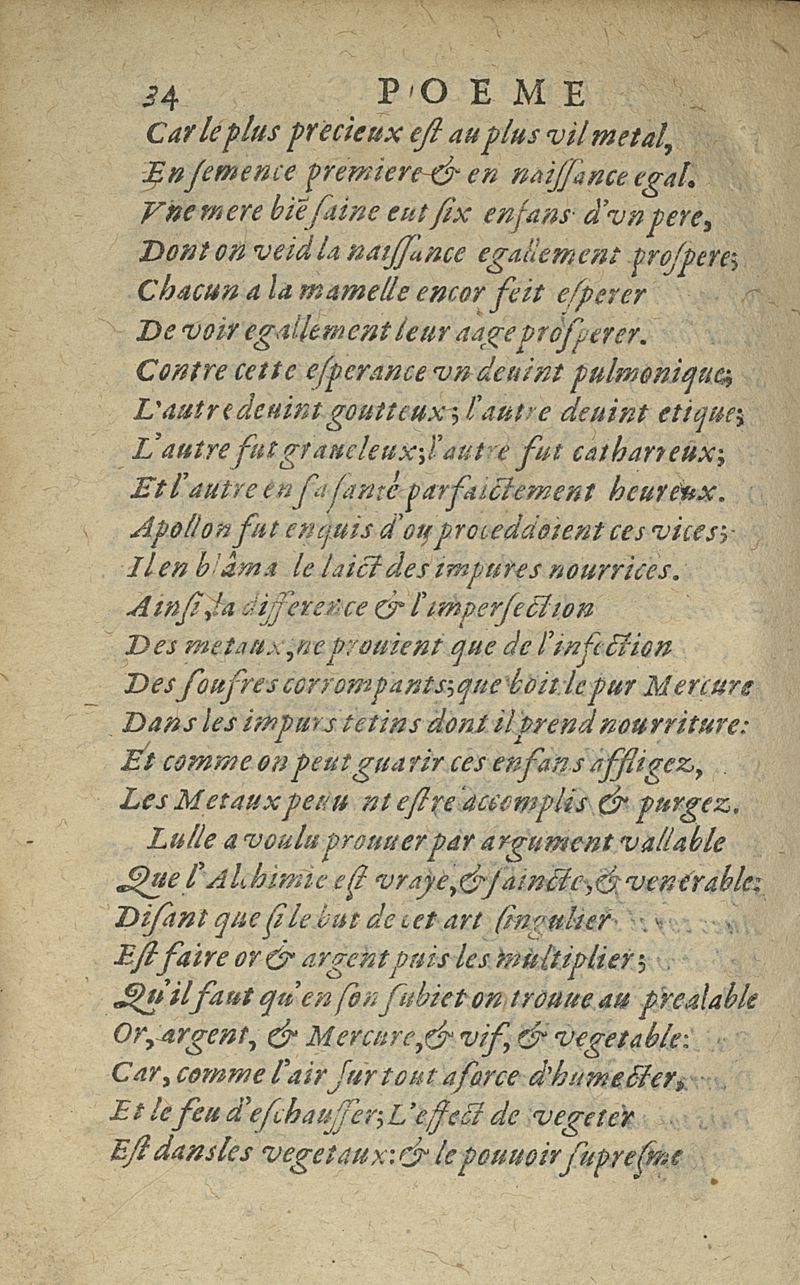 34 POEME
Car le plus precieux eſt au plus vil metal,
En ſemence premiere & en naiſſance egal.
Vne mere biē ſaine eut ſix enfans d'vn pere,
Dont on veid la naiſſance egallement proſpere;
Chacun a la mamelle encor feit eſperer
De voir egallement leur aage proſperer.
Contre cette eſperance vn deuint pulmonique;
L'autre deuint goutteux; l'autre deuint etique;
L'autre fut graueleux; l'autre fut catharreux;
Et l'autre en ſa ſanté parfaictement heureux.
Apollon fut enquis d'ou proceddoient ces vices;
Il en blâma le laict des impures nourrices.
Ainſi, la difference & l'imperfection
Des metaux, ne prouient que de l'infection
Des ſoufres corrompants; que boit le pur Mercure
Dans les impurs tetins dont il prend nourriture:
Et comme on peut guarir ces enfans affligez,
Les Metaux peuu nt eſtre accomplis & purgez.
Lulle a voulu prouuer par argument vallable
Que l'Alchimie eſt vraye, & ſaincte, & venerable:
Diſant que ſi le but de cet art ſingulier
Eſt faire or & argent puis les multiplier;
Qu'il faut qu'en ſon ſubiet on trouue au prealable
Or, argent, & Mercure, & vif, & vegetable:
Car, comme l'air ſur tout a force d'humecter,
Et le feu d'eſchauffer; L'effect de vegeter
Eſt dans les vegetaux: & le pouuoir ſupreſme